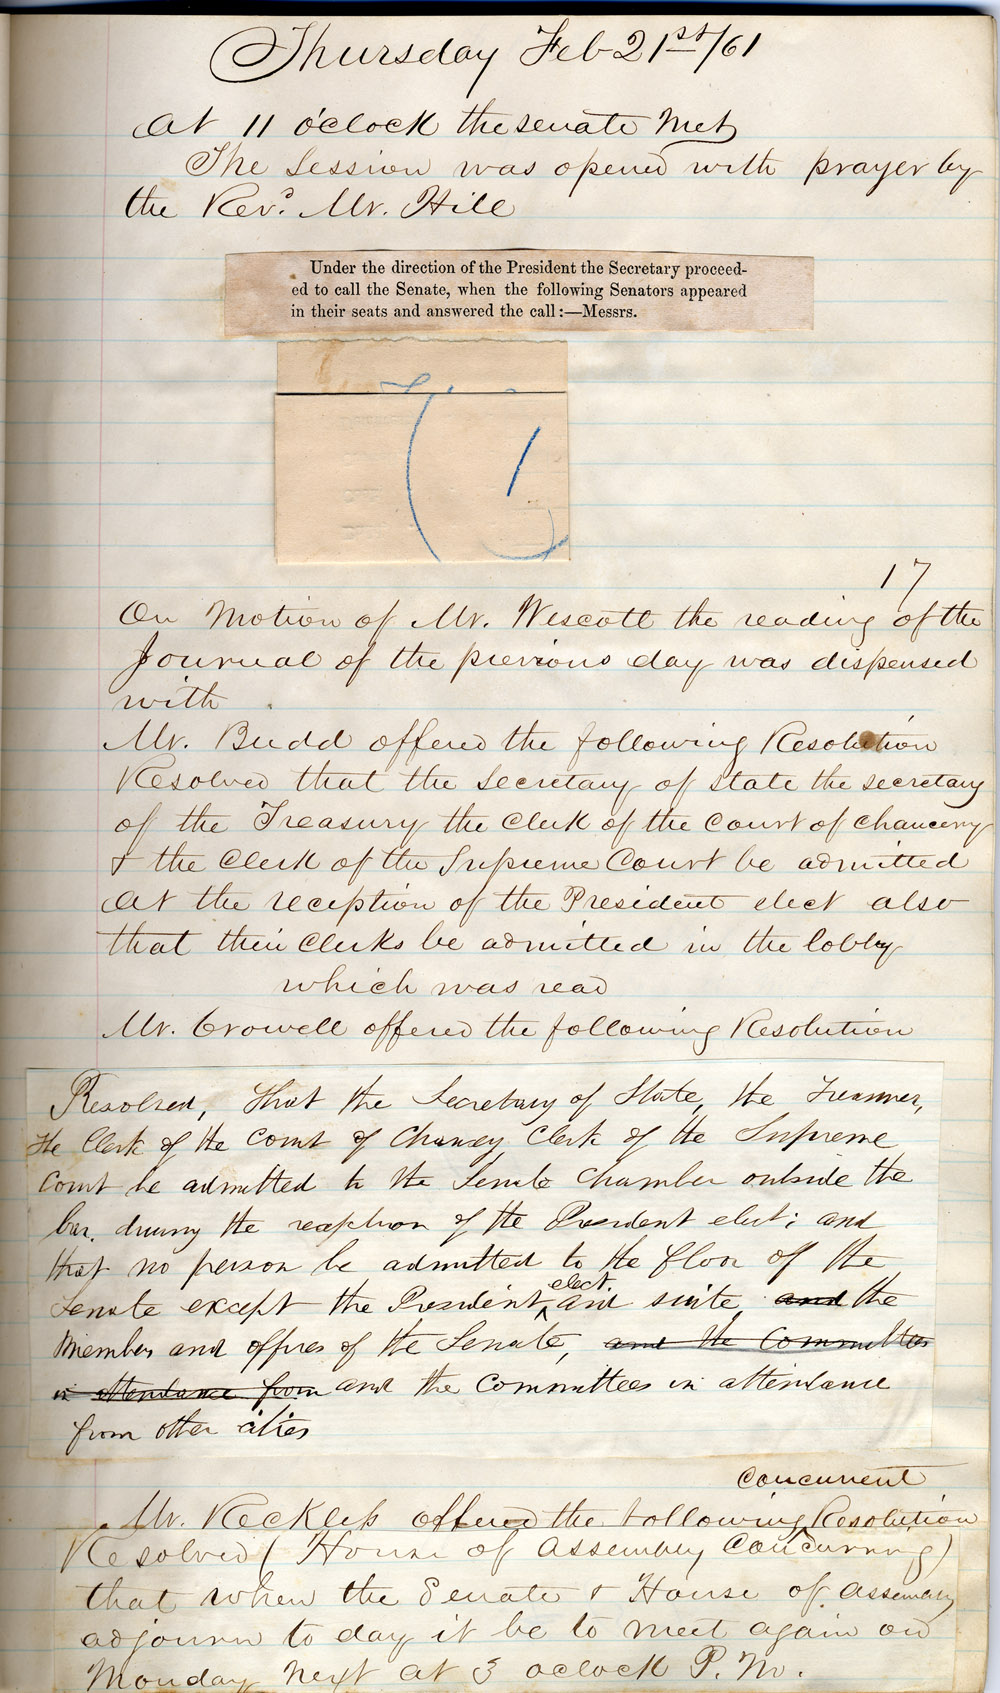 Thursday Feb 21st/61
At 11 o'clock the senate met
The Session was opened with prayer by
the Revd. Mr. Hill
Under the direction of the President the Secretary proceed-
ed to call the Senate, when the following Senators appeared
in their seats and answered the call:—Messrs.
17
On Motion of Mr. Wescott the reading of the
Journal of the previous day was dispensed
with
Mr. Budd offered the following Resolution
Resolved that the Secretary of State the secretary
of the Treasury the Clerk of the Court of Chancery
& the Clerk of the Supreme Court be admitted
At the reception of the President elect also
that their Clerks be admitted in the lobby
which was read
Mr. Crowell offered the following Resolution
Resolved, that the Secretary of State, the Treasurer,
the Clerk of the Court of Chancey, Clerk of the Supreme
Court be admitted to the Senate Chamber outside the
bar, during the reception of the President elect; and
that no person be admitted to the floor of the
elect
Senate except the President and suite, and the
Members and offices of the Senate, and the Committees
in attendance from and the Committees in attendance
from other cities
Concurrent
Mr. Reckless offered the following Resolution
Resolved (House of Assembly Concurring)
that when the Senate & House of Assembly
adjourn to day it be to meet again on
Monday next at 3 oclock P.M.